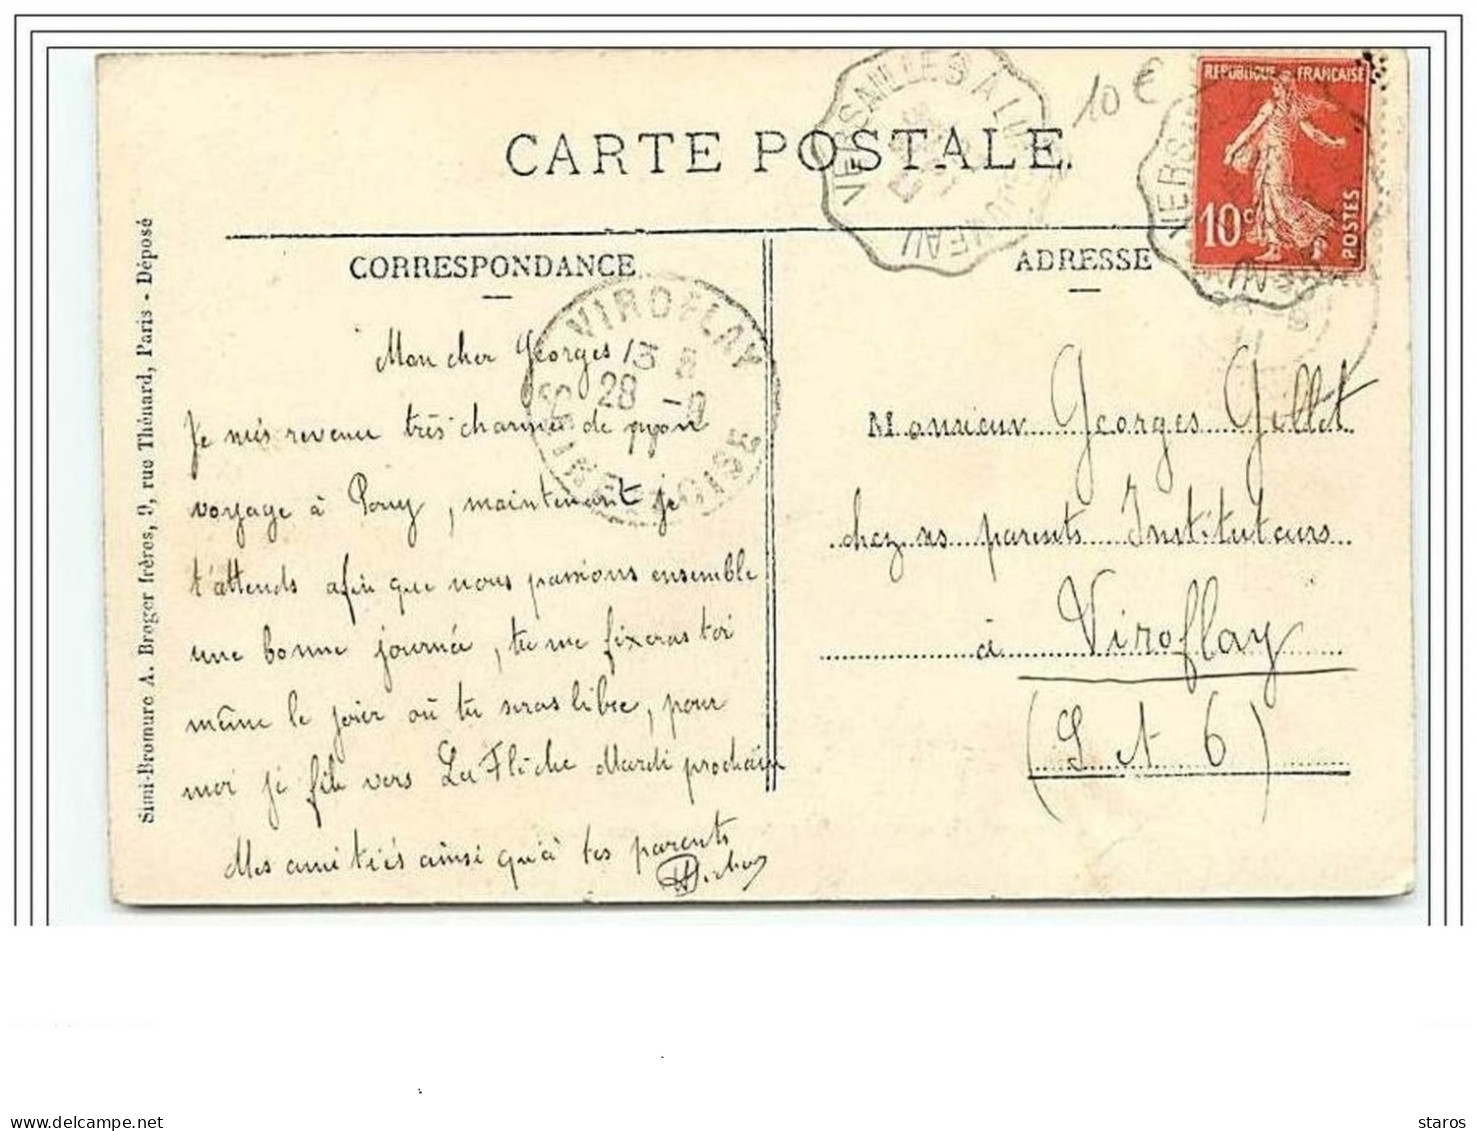 CARTE POSTALE.
VERSAILLES A
10 €
REPUBLIQUE FRANCAISE
10c
POSTES
CORRESPONDANCE
ADRESSE
VIROFLAY
28
SEINE ET OISE
Mon cher Georges
Je suis revenu très charmé de mon
voyage à , maintenant je
t'attends afin que nous passions ensemble
une bonne journée, tu me fixeras toi
même le jour où tu seras libre, pour
moi je file vers La Flèche Mardi prochain
Mes amitiés ainsi qu'à tes parents
Monsieur Georges Gillot
chez ses parents Instituteurs
à Viroflay
(S et O)
Simi-Bromure A. Breger frères, 9, rue Thénard, Paris - Déposé
staros